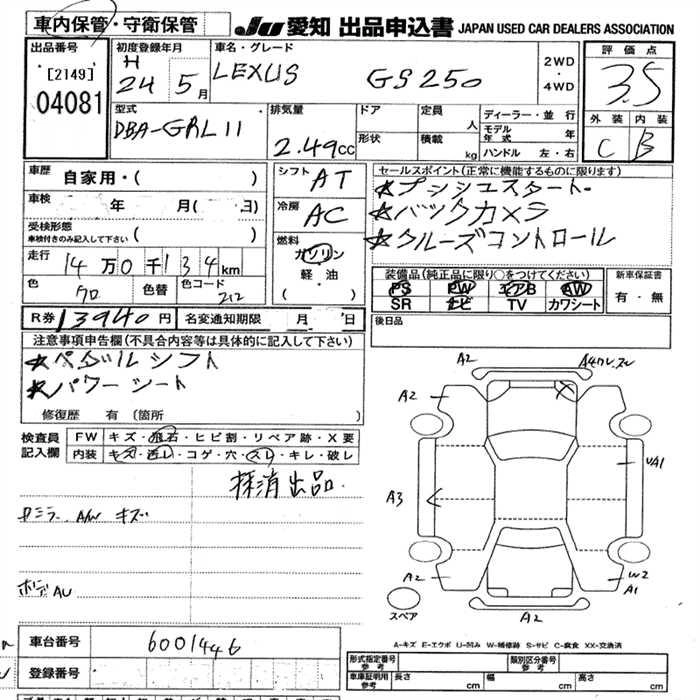 車内保管・守衛保管
JU 愛知 出品申込書 JAPAN USED CAR DEALERS ASSOCIATION
出品番号
[2149]
04081
初度登録年月
H 24 5月
車名・グレード
LEXUS GS250
2WD
・
4WD
評価点
3.5
外装 内装
C B
型式
DBA-GRL11
排気量
2.49cc
ドア
形状
定員 人
積載 kg
ディーラー・並行
モデル年式 年
ハンドル 左・右
車歴
自家用・( )
車検
年 月( 日)
受検形態
車検付きのみ記入して下さい ( )
走行
14万0千134km
色
クロ
色替
色コード
212
シフト
AT
冷房
AC
燃料
ガソリン
軽・油
( )
セールスポイント(正常に機能するものに限ります)
★プッシュスタート
★バックカメラ
★クルーズコントロール
装備品(純正品に限り○をつけてください)
PS PW エアB AW
SR ナビ TV カワシート
新車保証書
有・無
R券 13940円
名変通知期限 月 日
後日品
注意事項申告欄(不具合内容等は具体的に記入して下さい)
★ペダルシフト
★パワーシート
修復歴 有 (箇所 )
検査員記入欄
FW キズ・飛石・ヒビ割・リペア跡・X要
内装 キズ・汚レ・コゲ・穴・スレ・キレ・破レ
抹消出品.
AW キズ
ボデーAU
A2
A2
A3
A2
A2
A1
W2
スペア
A-キズ E-エクボ U-凹み W-補修跡 S-サビ C-腐食 XX-交換済
車台番号 6001446
登録番号
形式指定番号 参考
類別区分番号 参考
車庫証明用 参考 長さ cm 幅 cm 高さ cm